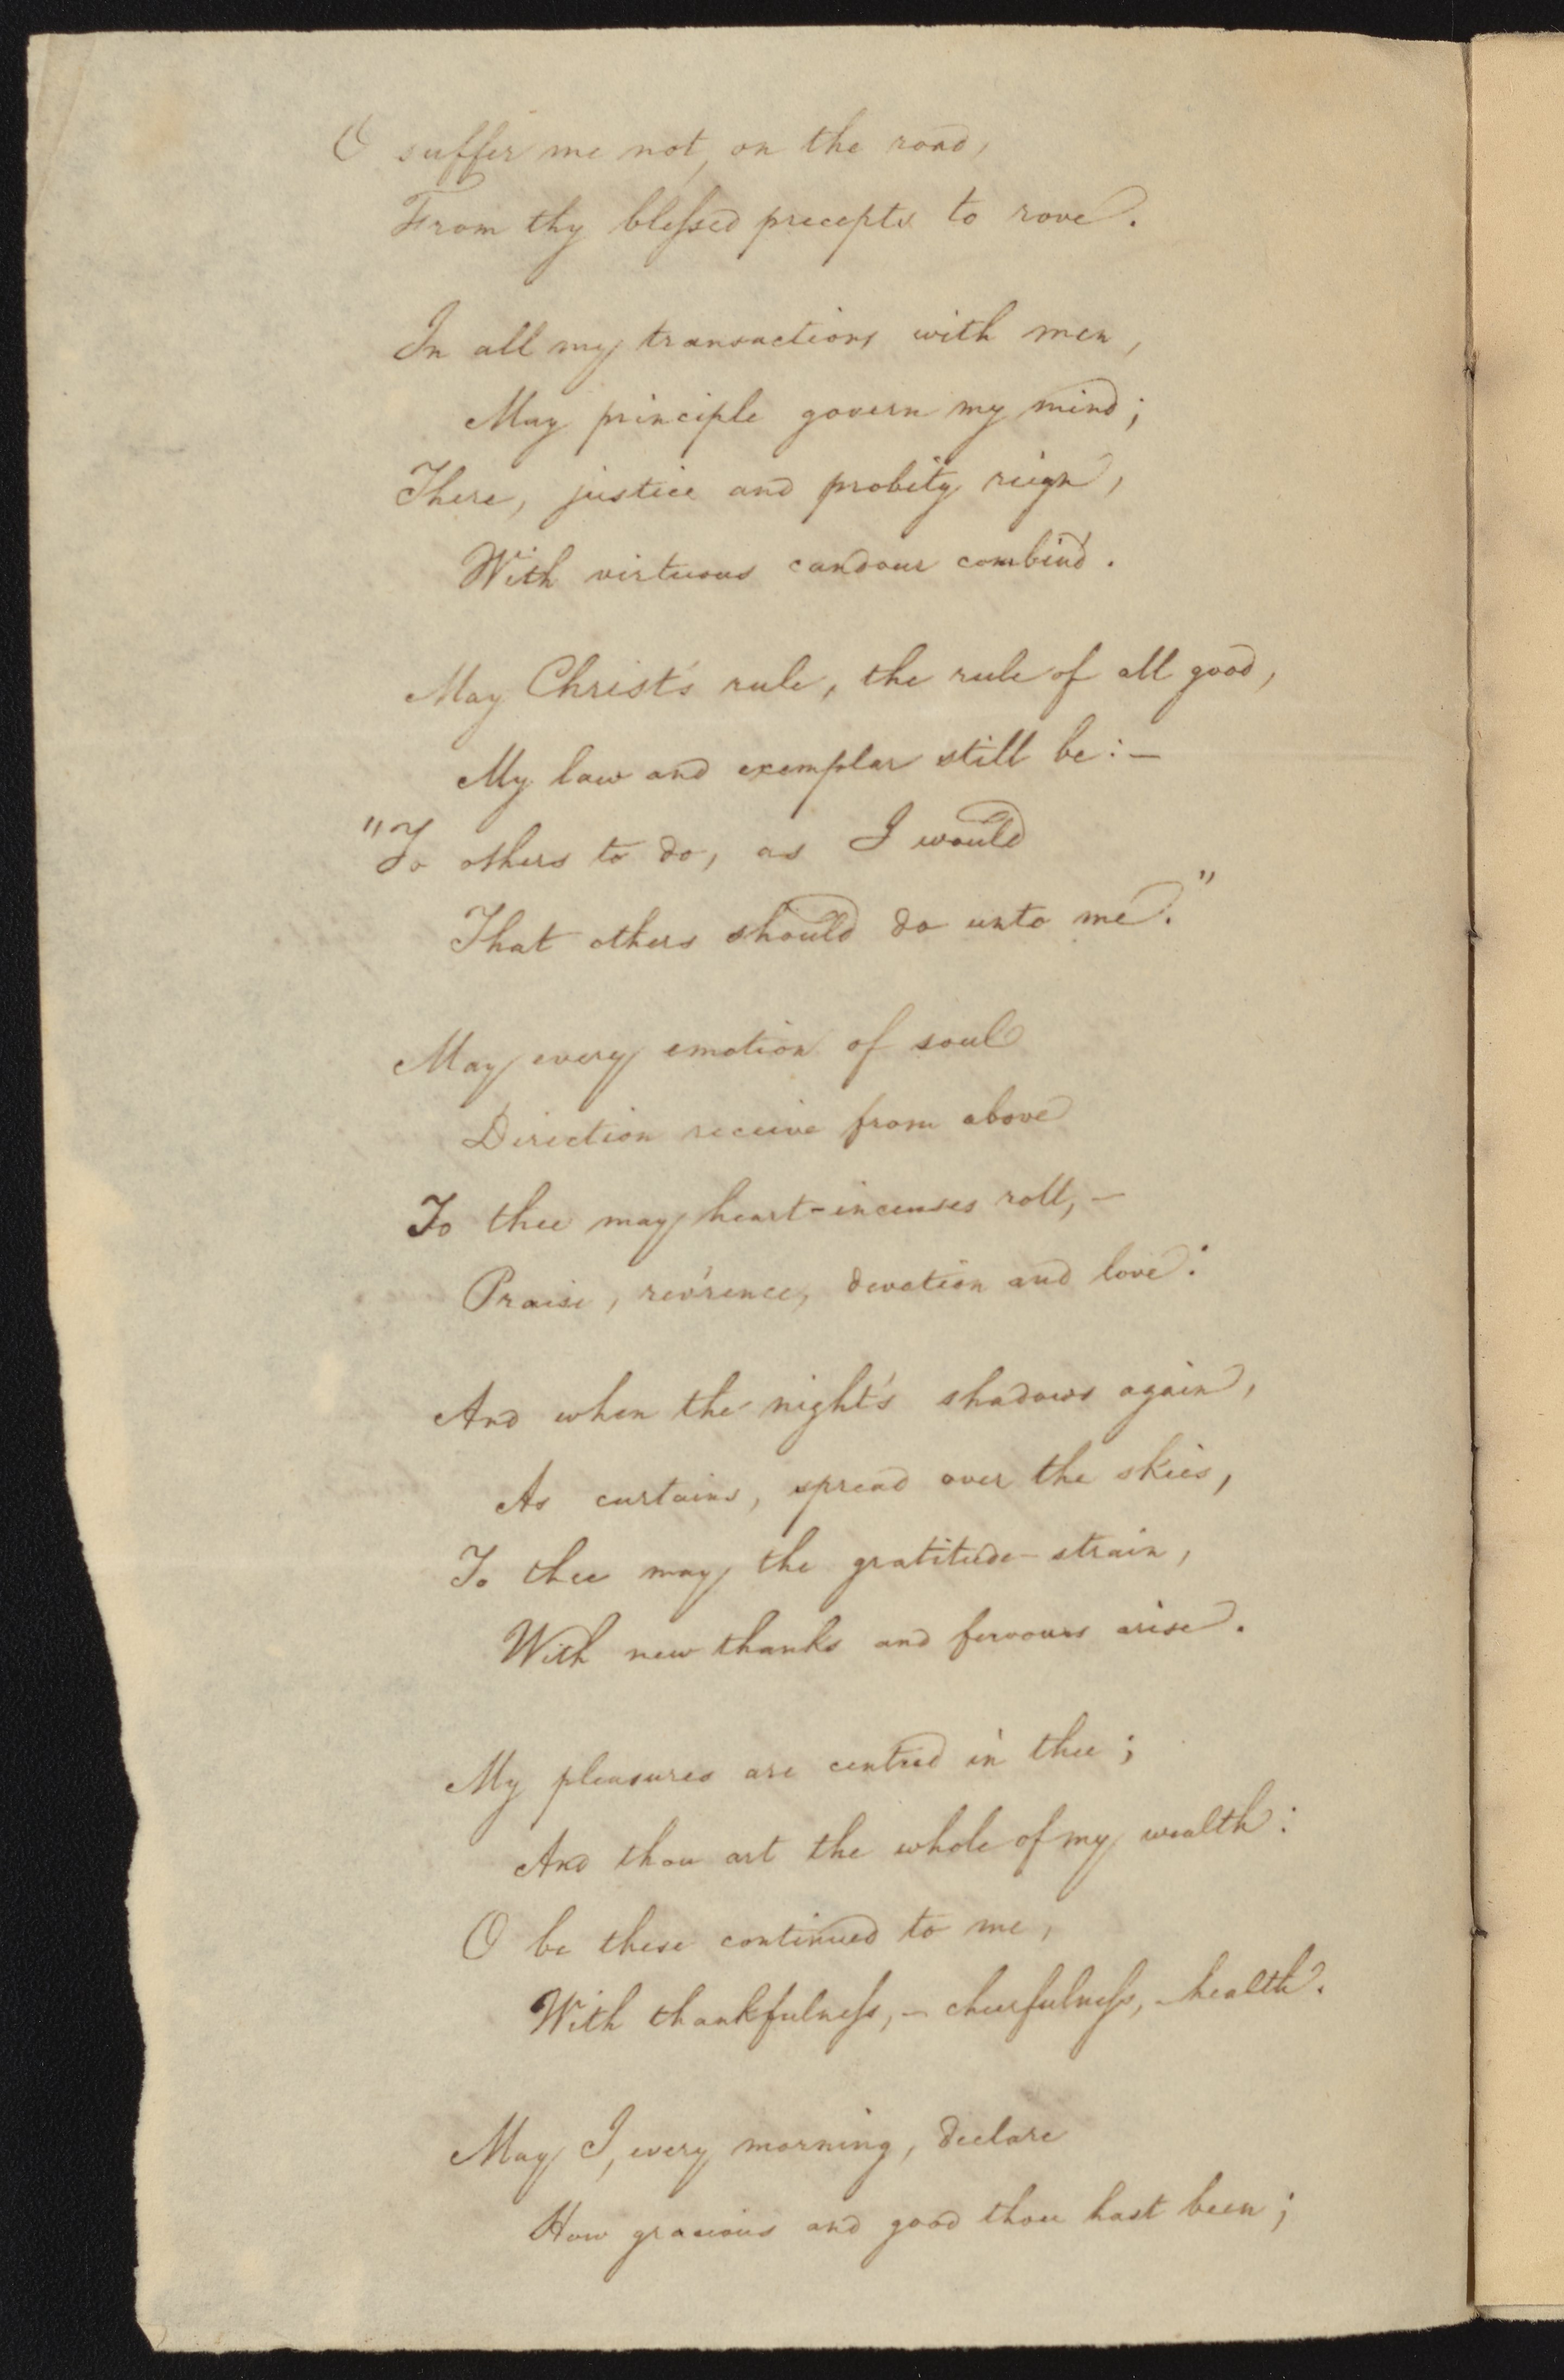 O suffer me not, on the road,
From thy bleſsed precepts to rove.
In all my transactions with men,
May principle govern my mind;
There, justice and probity reign,
With virtuous candour combin'd.
May Christ's rule, the rule of all good,
My law and exemplar still be:—
"To others to do, as I would
That others should do unto me."
May every emotion of soul
Direction receive from above
To thee may heart-incenses roll,—
Praise, rev'rence, devotion and love:
And when the night's shadows again,
As curtains, spread over the skies,
To thee may the gratitude-strain,
With new thanks and fervours arise.
My pleasures are centred in thee;
And thou art the whole of my wealth:
O be these continued to me,
With thankfulneſs,— cheerfulneſs,—health.
May I, every morning, declare
How gracious and good thou hast been;